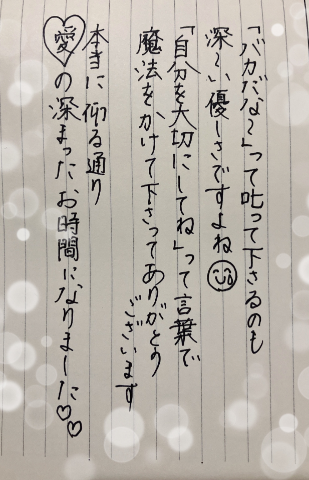 「バカだな〜」って叱って下さるのも
深〜い優しさですよね
「自分を大切にしてね」って言葉で
魔法を、かけて下さってありがとう
ございます
本当に仰る通り
愛の深まったお時間になりました♡♡